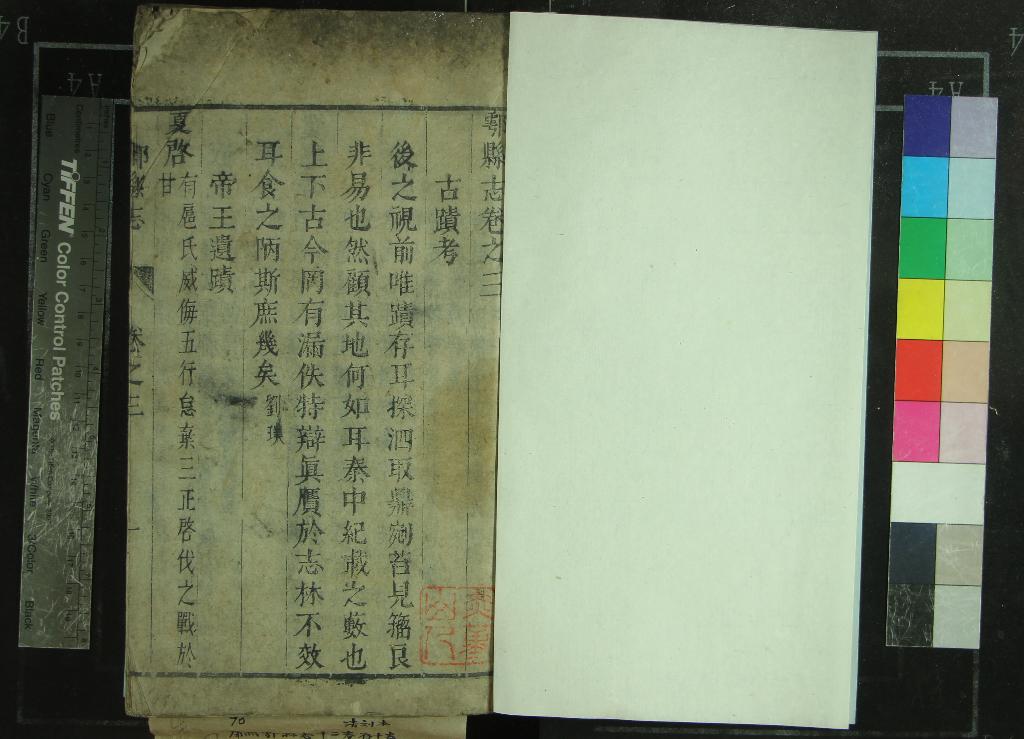 鄠縣志卷之三
古蹟考
後之視前唯蹟存耳探泗取鼎剜苔見籀良
非易也然顧其地何如耳秦中紀載之藪也
上下古今罔有漏佚特辯眞贋於志林不效
耳食之陋斯庶幾矣劉璞
帝王遺蹟
夏啓有扈氏威侮五行怠棄三正啓伐之戰於
甘
縣志
卷之三
一
TIFFEN Color Control Patches
Centimetres
Inches
Blue
Cyan
Green
Yellow
Red
Magenta
White
3/Color
Black
A4
A4
B4
A4
70